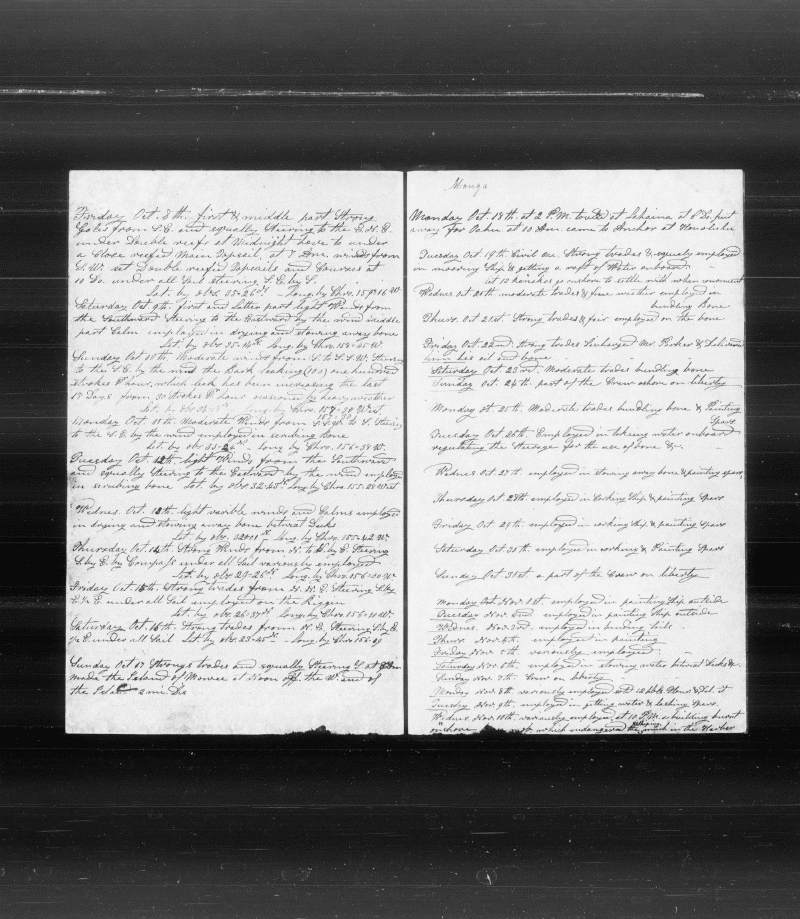 Friday Oct. 8th. first & middle part Strong
Gales from S.E. and squally Steering to the E.N.E.
under Double reefs at Midnight hove to under
a Close reefed Main Topsail, at 7 Am. winds from
S.W. set Double reefed Topsails and Courses at
10 Do. under all Sail Steering S.E. by S.
Lat. by obs. 35-26 N Long. by Chro.
Saturday Oct. 9th. first and latter part light Winds from
the Southward Steering to the Eastward by the wind middle
part Calm employed in drying and stowing away bone
Lat. by obs 35-14 N. Long. by Chro. 158-45 W
Sunday Oct. 10th. Moderate winds from S. to S.S.W. Steering
to the S.E. by the wind the Bark leaking (100) one hundred
strokes Pr hour, which leak has been increasing the last
17 Days from 30 strokes Pr hour occasioned by heavy weather
Lat. by obs Long. by Chro. 157-30 West
Monday Oct. 11th. Moderate Winds from S.S.W. to S. Steering
to the S.E. by the wind employed in scrubing bone
Lat by obs 33-26 N Long by Chro. 156-38 W.
Tuesday Oct. 12th. light Winds from the Southward
and squally Steering to the Eastward by the wind employed
in scrubing bone Lat. by obs 32-43 N Long by Chro. 155-28 West
Wednes. Oct. 13th. light varible winds and Calms employed
in drying and stowing away bone betwixt Decks
Lat. by obs. 32-11 N. Long. by Chro. 155-42 W.
Thursday Oct. 14th. Strong Winds from N. to N. by E. Steering
S. by E. by Compass under all Sail variously employed
Lat. by obs 29-26 N. Long. by Chro. 156-00 W.
Friday Oct. 15th. Strong trades from N.N.E. Steering S. by
E ½ E. under all Sail employed on the Riggin
Lat by obs. 26-37 N Long. by Chro. 156-10 W.
Saturday Oct. 16th. Strong trades from N.E. Steering S. by E.
½ E. under all Sail Lat by obs. 23-45 N. Long. by Chro 156-
Sunday Oct 17 Strong trades and squally Steering S. at
made the Island of Mowee at Noon off the W. end of
the Island 2 mi. Dis
Monday Oct. 18th. at 2 P.M. touched at Lahaina at 8 Do. put
away for Oahu at 10 Am. came to Anchor at Honolulu
Tuesday Oct. 19th. Civil acc. Strong trades & squaly employed
on mooring Ship & getting a raft of Water onboard
at 12 on shore to settle with when convenient
Wednes Oct. 20th. moderate trades & fine weather employed in
bundling bone
Thurs. Oct. 21st. Strong trades & fair employed on the bone
Friday Oct. 22nd. Strong trades Discharged Mr. Fisher & Delivered
him his oil and bone
Saturday Oct. 23rd. Moderate trades bundling bone
Sunday Oct. 24th part of the Crew ashore on liberty
Monday Oct. 25th. Moderate trades bundling bone & Painting
Spars
Tuesday Oct. 26th. Employed in takeing water onboard
regulating the Steerage for the use of bone &c.
Wednes Oct. 27th. employed in stowing away bone & painting spars
Thursday Oct. 28th. employed in Corking Ship & painting Spars
Friday Oct. 29th. employed in corking Ship & painting Spars
Saturday Oct. 30th. employed in corking & Painting Spars
Sunday Oct. 31st. a part of the Crew on liberty
Monday Oct. Nov. 1st. employed in painting Ship outside
Tuesday Nov. 2nd employed in painting Ship outside
Wednes. Nov. 3rd employed in bending Sails
Thurs. Nov. 4th. employed in painting
Friday Nov. 5th. variously employed
Saturday Nov. 6th. employed in stowing water betwixt Decks &c.
Sunday Nov. 7th. Crew on liberty
Monday Nov. 8th. variously employed sold 12 bbls Flour & Del. it
Tuesday Nov. 9th. employed in getting water & lashing spars.
Wednes. Nov. 10th. variously employed, at 10 P.M. a building burnt
on shore which endangered the shipping much in the Harbor